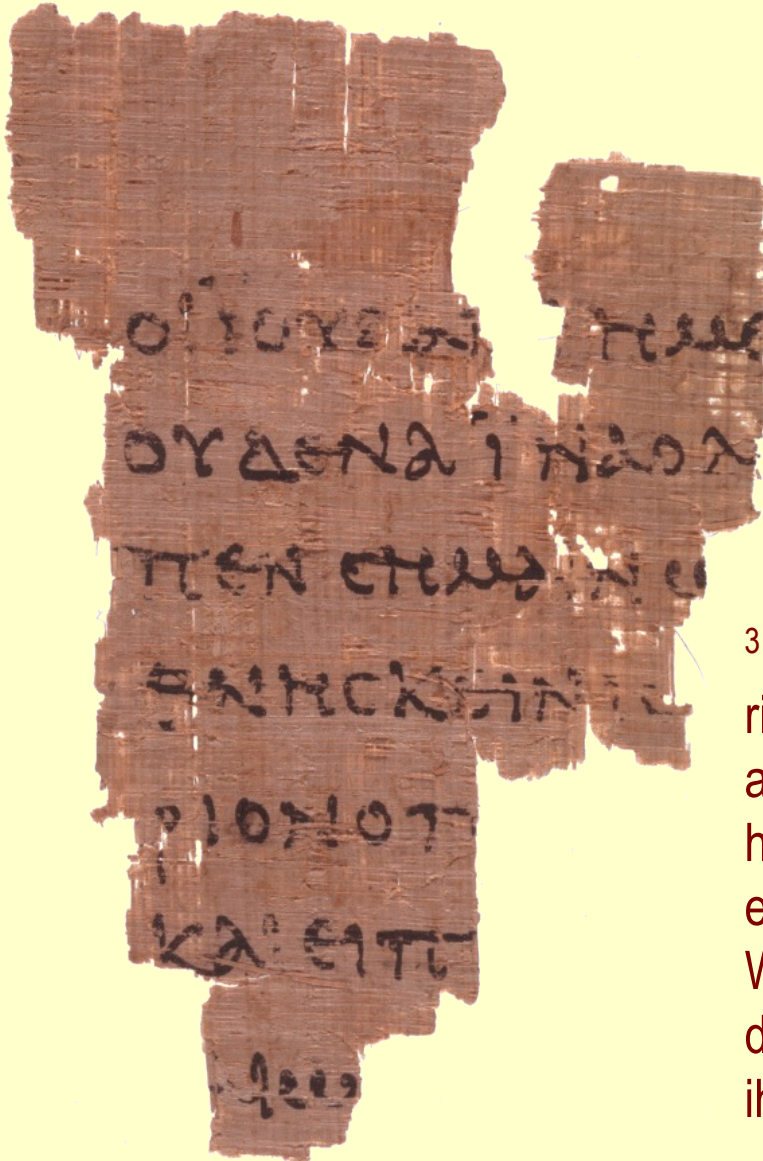 ΟΙ ΪΟΥΔΑΙ ΗΜΕ
ΟΥΔΕΝΑ ΪΝΑ Ο Λ
ΠΕΝ ϹΗΜΑΙΝΩ
ΘΝΗϹΚΕΙΝ ΙϹ
ΡΙΟΝ Ο Π
ΚΑΙ ΕΙΠ
ΑΙΩ
3
ri
a
h
e
W
d
ih